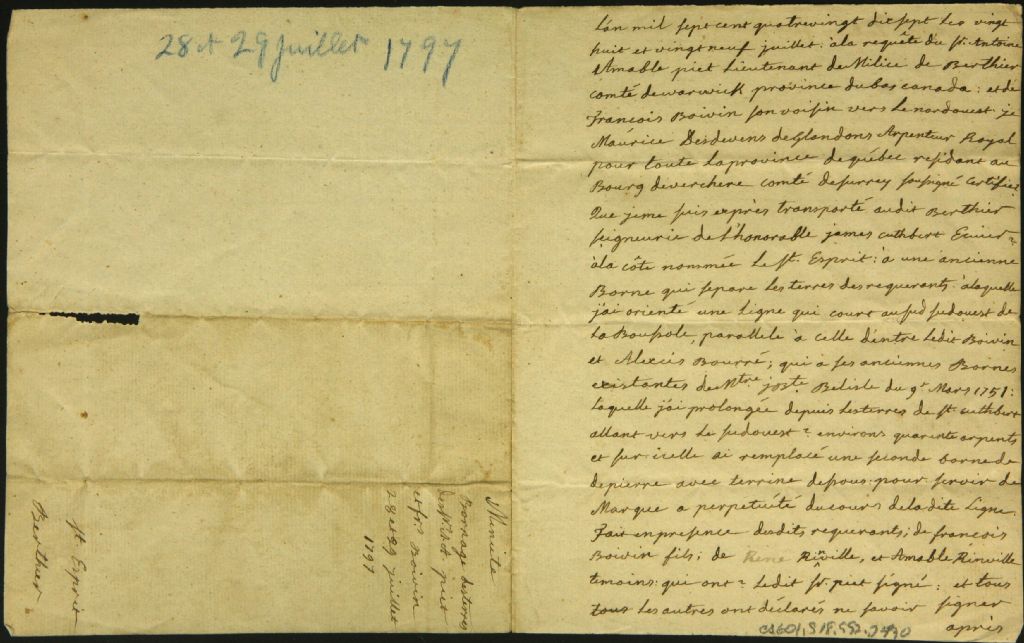 28 et 29 juillet 1797
St Esprit
Berthier
Minute
Bornage des terres
piet
et fr. Boivin
28 et 29 juillet
1797
L'an mil sept cent quatrevingt dix sept les vingt
huit et vingt neuf juillet: a la requête du Sr. Antoine
Amable piet Lieutenant de Milice de Berthier
comté de warwick province du bas canada: et de
François Boivin son voisin vers le nordouest je
Maurice Desdevens de Glandons Arpenteur Royal
pour toute la province de québec residant au
Bourg de verchere comté de surrey soussigné Certifie:
Que je me suis exprès transporté audit Berthier
seigneurie de l'honorable james cuthbert Ecuier
à la côte nommée le St. Esprit: a une ancienne
Borne qui separe les terres des requerants: a laquelle
j'ai orienté une ligne qui court au sud sudouest de
la Boussole, parallele à celle d'entre ledit Boivin
et Alexis Bourré; qui a ses anciennes Bornes
existantes de Ntre jBte. Belisle du 9r Mars 1751:
laquelle j'ai prolongée depuis les terres de St. cuthbert
allant vers le sudouest environs quarente arpents
et sur icelle ai remplacé une seconde borne de
de pierre avec terrine dessous pour servir de
Marque a perpetuité du cours de la dite Ligne.
Fait en presence desdits requerants; de francois
Boivin fils; de Rene Rinville, et Amable Rinville
temoins: qui ont ledit Sr. piet signé: et tous
tous les autres ont déclarés ne savoir signer
après
CA601,S18,SS2,